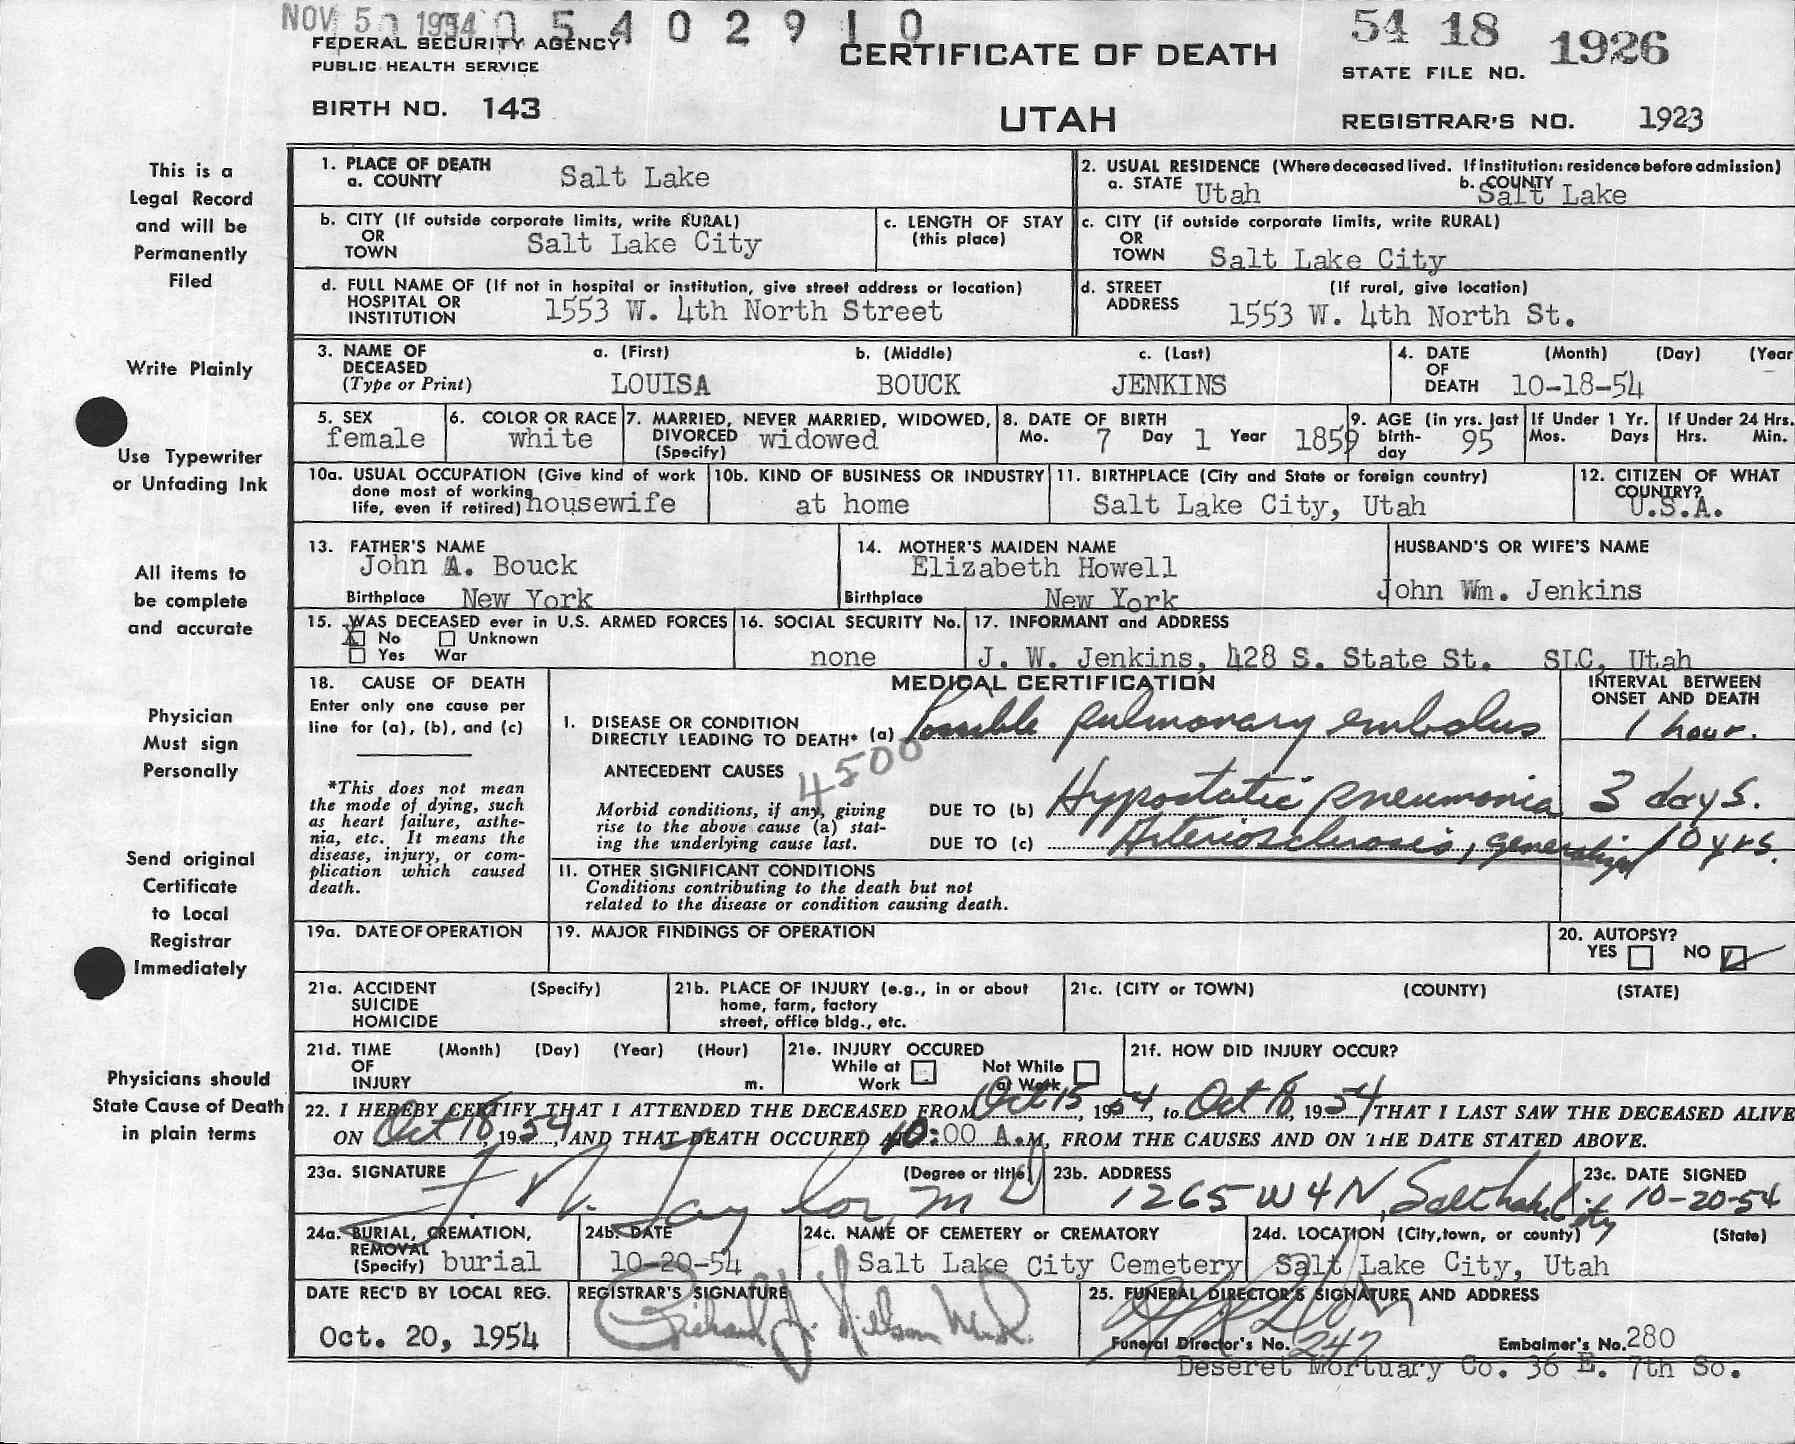 NOV 5 1954 0 5 4 0 2 9 1 0
54 18 1926
FEDERAL SECURITY AGENCY
PUBLIC HEALTH SERVICE
CERTIFICATE OF DEATH
STATE FILE NO.
BIRTH NO. 143
UTAH
REGISTRAR'S NO. 1923
This is a
Legal Record
and will be
Permanently
Filed
Write Plainly
Use Typewriter
or Unfading Ink
All items to
be complete
and accurate
Physician
Must sign
Personally
Send original
Certificate
to Local
Registrar
Immediately
Physicians should
State Cause of Death
in plain terms
1. PLACE OF DEATH
a. COUNTY Salt Lake
2. USUAL RESIDENCE (Where deceased lived. If institution: residence before admission)
a. STATE Utah b. COUNTY Salt Lake
b. CITY (If outside corporate limits, write RURAL)
OR
TOWN Salt Lake City
c. LENGTH OF STAY
(this place)
c. CITY (if outside corporate limits, write RURAL)
OR
TOWN Salt Lake City
d. FULL NAME OF (If not in hospital or institution, give street address or location)
HOSPITAL OR
INSTITUTION 1553 W. 4th North Street
d. STREET (If rural, give location)
ADDRESS 1553 W. 4th North St.
3. NAME OF
DECEASED
(Type or Print)
a. (First) b. (Middle) c. (Last)
LOUISA BOUCK JENKINS
4. DATE (Month) (Day) (Year
OF
DEATH 10-18-54
5. SEX
female
6. COLOR OR RACE
white
7. MARRIED, NEVER MARRIED, WIDOWED,
DIVORCED widowed
(Specify)
8. DATE OF BIRTH
Mo. 7 Day 1 Year 1859
9. AGE (in yrs. last
birth- 95
day
If Under 1 Yr.
Mos. Days
If Under 24 Hrs.
Hrs. Min.
10a. USUAL OCCUPATION (Give kind of work
done most of working
life, even if retired) housewife
10b. KIND OF BUSINESS OR INDUSTRY
at home
11. BIRTHPLACE (City and State or foreign country)
Salt Lake City, Utah
12. CITIZEN OF WHAT
COUNTRY?
U.S.A.
13. FATHER'S NAME
John A. Bouck
Birthplace New York
14. MOTHER'S MAIDEN NAME
Elizabeth Howell
Birthplace New York
HUSBAND'S OR WIFE'S NAME
John Wm. Jenkins
15. WAS DECEASED ever in U.S. ARMED FORCES
X No Unknown
Yes War
16. SOCIAL SECURITY No.
none
17. INFORMANT and ADDRESS
J. W. Jenkins, 428 S. State St. SLC, Utah
18. CAUSE OF DEATH
Enter only one cause per
line for (a), (b), and (c)
*This does not mean
the mode of dying, such
as heart failure, asthe-
nia, etc. It means the
disease, injury, or com-
plication which caused
death.
MEDICAL CERTIFICATION
INTERVAL BETWEEN
ONSET AND DEATH
I. DISEASE OR CONDITION
DIRECTLY LEADING TO DEATH* (a) Possible pulmonary embolus 1 hour.
4500
ANTECEDENT CAUSES
Morbid conditions, if any, giving
rise to the above cause (a) stat-
ing the underlying cause last.
DUE TO (b) Hypostatic pneumonia 3 days.
DUE TO (c) Arteriosclerosis, generalized 10 yrs.
II. OTHER SIGNIFICANT CONDITIONS
Conditions contributing to the death but not
related to the disease or condition causing death.
19a. DATE OF OPERATION
19. MAJOR FINDINGS OF OPERATION
20. AUTOPSY?
YES NO
21a. ACCIDENT (Specify)
SUICIDE
HOMICIDE
21b. PLACE OF INJURY (e.g., in or about
home, farm, factory
street, office bldg., etc.
21c. (CITY or TOWN) (COUNTY) (STATE)
21d. TIME (Month) (Day) (Year) (Hour)
OF
INJURY m.
21e. INJURY OCCURED
While at Not While
Work at Work
21f. HOW DID INJURY OCCUR?
22. I HEREBY CERTIFY THAT I ATTENDED THE DECEASED FROM Oct 15, 1954, to Oct 18, 1954, THAT I LAST SAW THE DECEASED ALIVE
ON Oct 18, 1954, AND THAT DEATH OCCURED 10:00 A.M, FROM THE CAUSES AND ON THE DATE STATED ABOVE.
23a. SIGNATURE (Degree or title)
Taylor, MD
23b. ADDRESS
1265 W 4 N, Salt Lake City
23c. DATE SIGNED
10-20-54
24a. BURIAL, CREMATION,
REMOVAL
(Specify) burial
24b. DATE
10-20-54
24c. NAME OF CEMETERY or CREMATORY
Salt Lake City Cemetery
24d. LOCATION (City, town, or county) (State)
Salt Lake City, Utah
DATE REC'D BY LOCAL REG.
Oct. 20, 1954
REGISTRAR'S SIGNATURE
Richard J. Nielson M.D.
25. FUNERAL DIRECTOR'S SIGNATURE AND ADDRESS
Funeral Director's No. 247 Embalmer's No. 280
Deseret Mortuary Co. 36 E. 7th So.